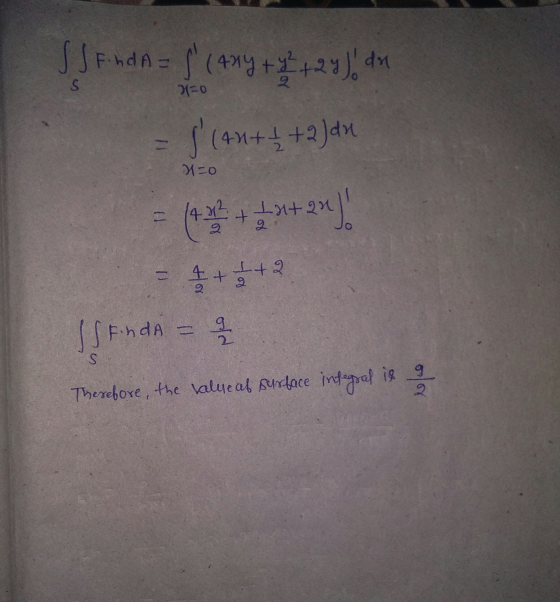 ∫∫_S F·n dA = ∫_{x=0}^{1} (4xy + y²/2 + 2y)]_0^1 dx
= ∫_{x=0}^{1} (4x + 1/2 + 2) dx
= (4 x²/2 + 1/2 x + 2x)]_0^1
= 4/2 + 1/2 + 2
∫∫_S F·n dA = 9/2
Therefore, the value of surface integral is 9/2